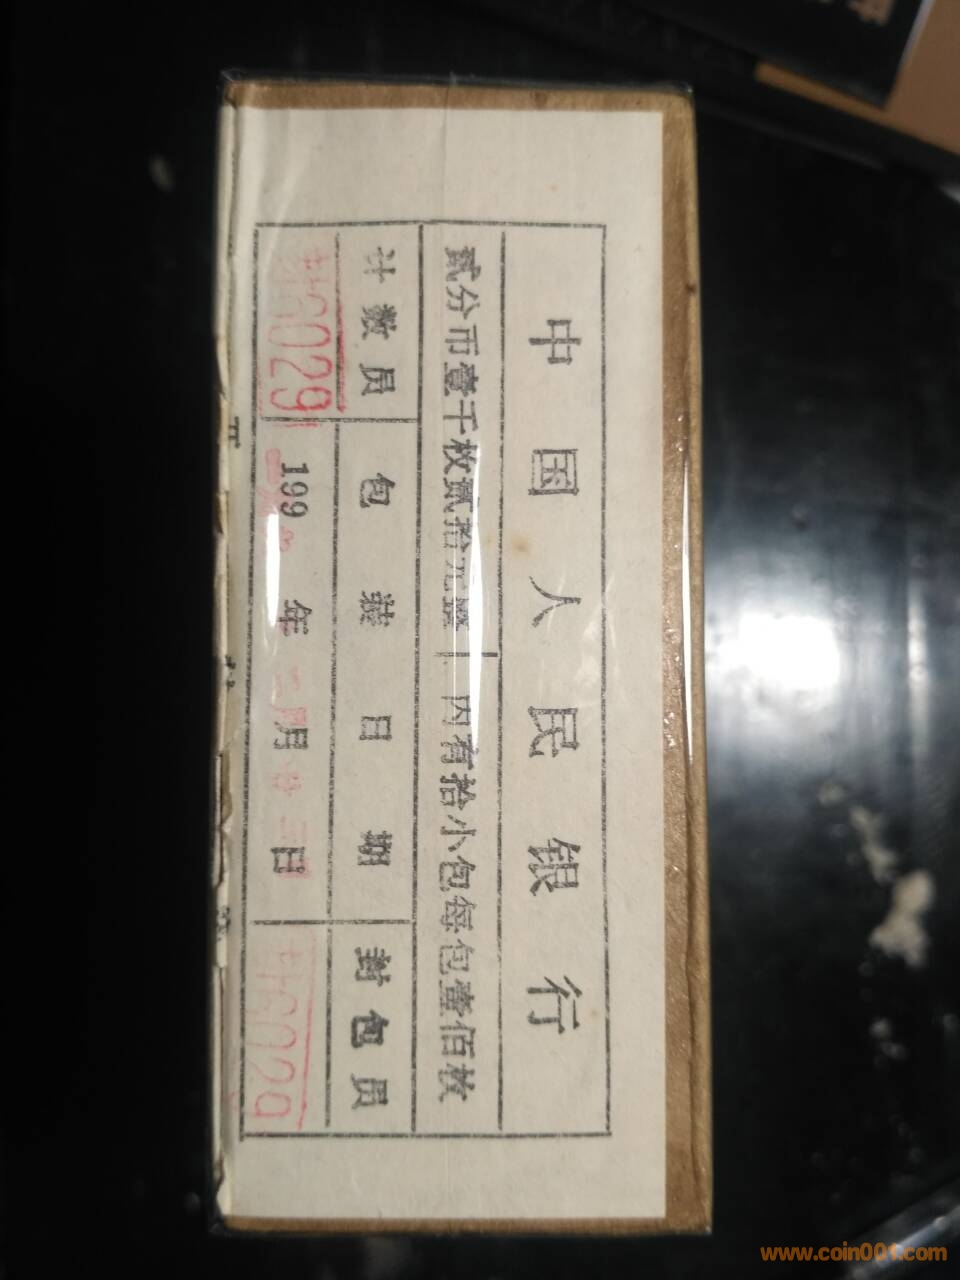 中国人民银行
贰分币壹千枚贰拾元整 内有拾小包每包壹佰枚
计数员 包装日期 封包员
G029 199 年 二月廿三日 G029
www.coin001.com